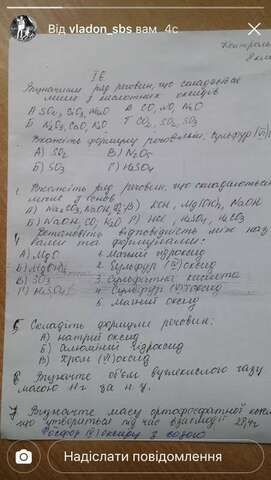 Від vladon_sbs вам 4с
Контроль
8 кла
І В
Визначити ряд речовин, що складається
лише з кислотних оксидів
А) SO₂, CaO, Na₂O В) CO, NO, N₂O
Б) N₂O₅, CaO, K₂O Г) CO₂, SO₂, SO₃
Вкажіть формулу речовини: сульфур
А) SO₂ В) N₂O₅
Б) SO₃ Г) H₂SO₄
Вкажіть ряд речовин, що складаються
лише з основ
А) Na₂CO₃, NaOH, В) KOH, Mg(OH)₂, NaOH
Б) NaOH, CO, K₂O Г) HCl, H₂SO₄, H₂CO₃
Установіть відповідність між наз
вами та формулами:
А) MgO 1. Магній гідроксид
Б) Mg(OH)₂ 2. Сульфур (IV) оксид
В) SO₃ 3. Сульфатна кислота
Г) H₂SO₄ 4. Сульфур (VI) оксид
5. Магній оксид
5 Складіть формули речовин:
А) натрій оксид
Б) алюміній гідроксид
В) Хром (VI) оксид
6. Визначте об'єм вуглекислого газу
масою г за н.у.
7 Визначте масу ортофосфатної кисло
що утвориться під час взаємодії 28,4г
Фосфор (V) оксиду з водою
Надіслати повідомлення